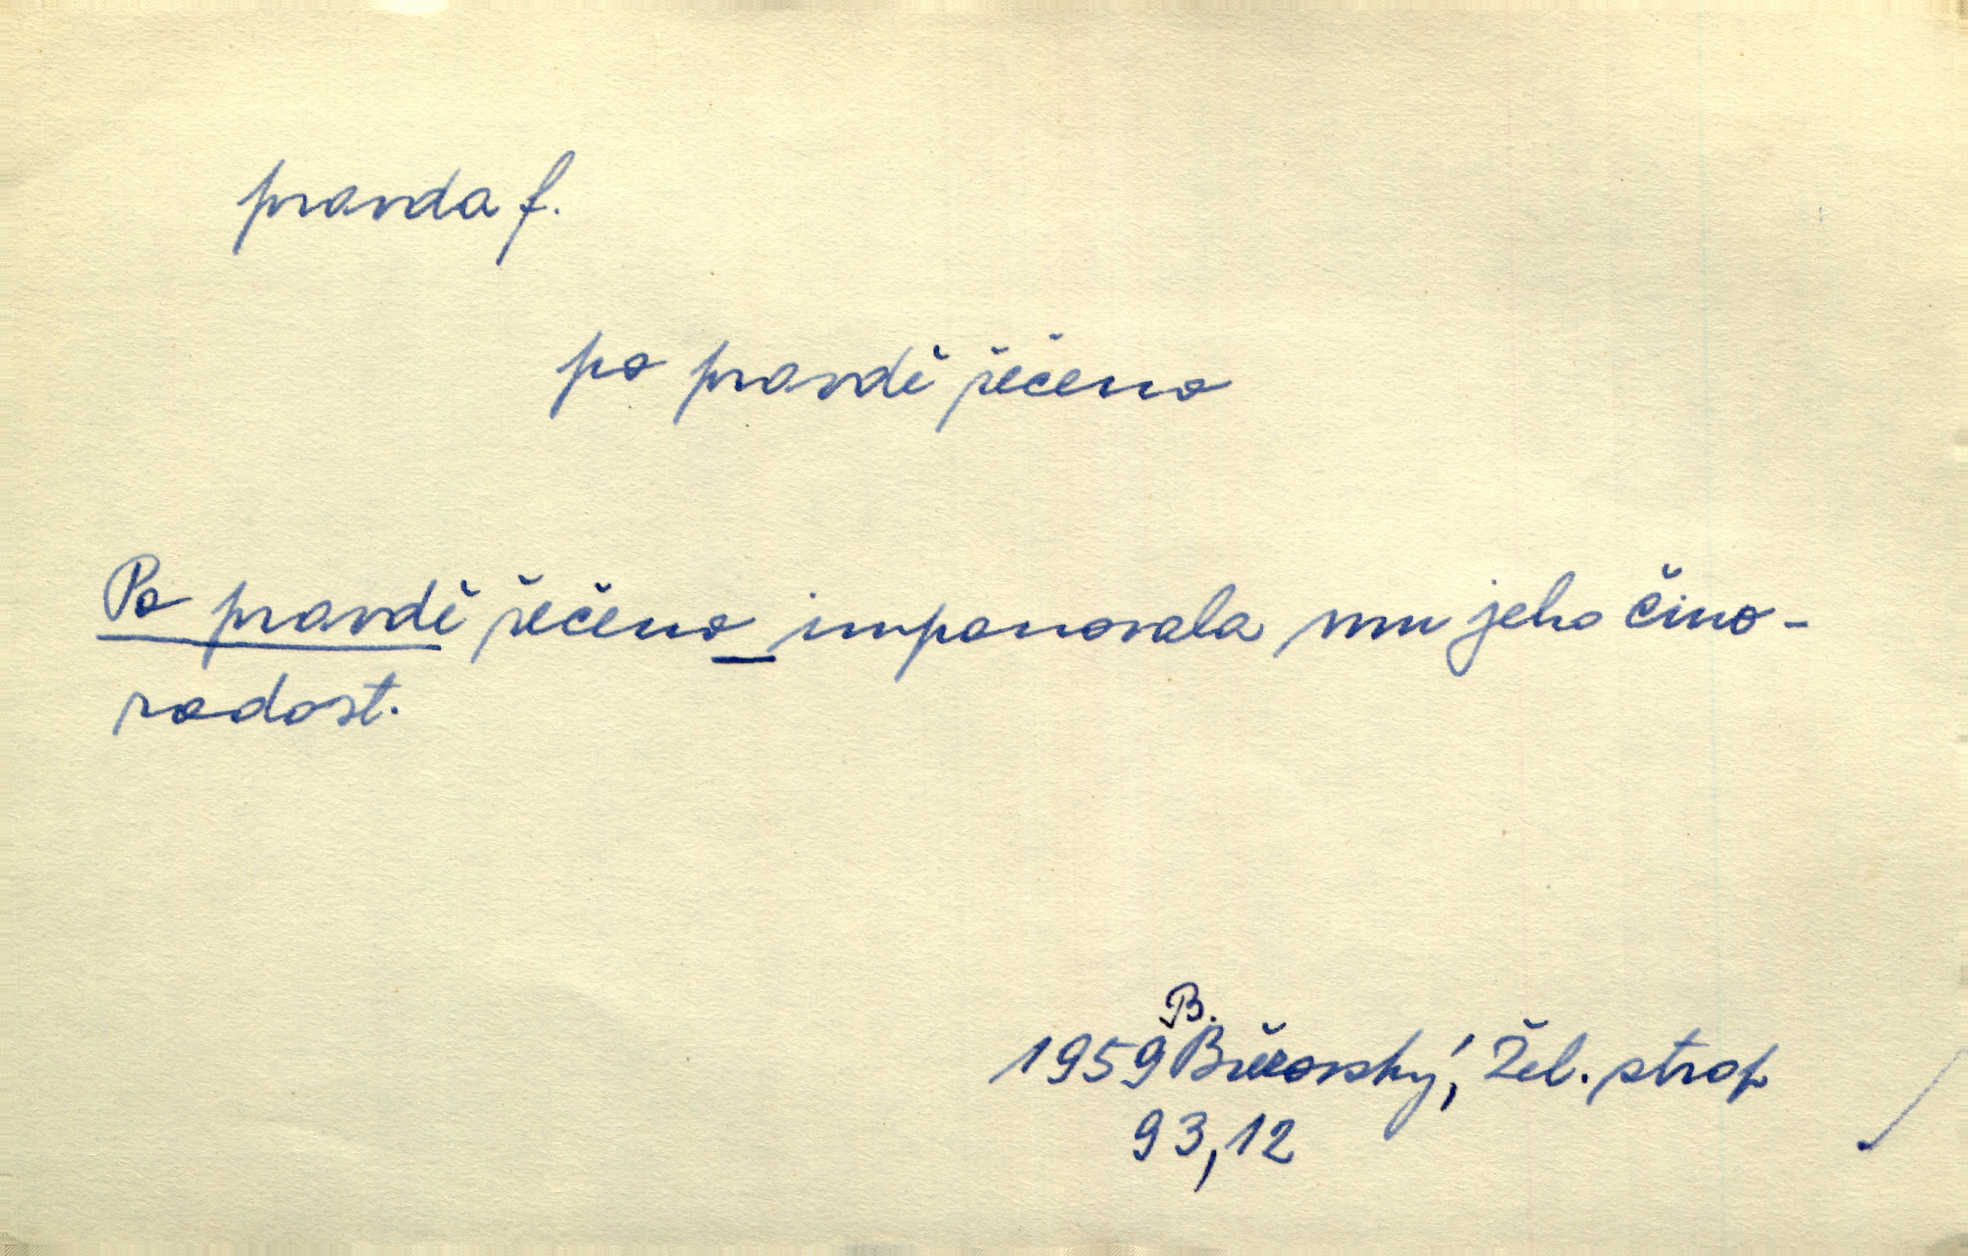 pravda f.
po pravdě řečeno
Po pravdě řečeno imponovala mu jeho čino-
rodost.
B.
1959 Březovský, Žel. strop
93,12